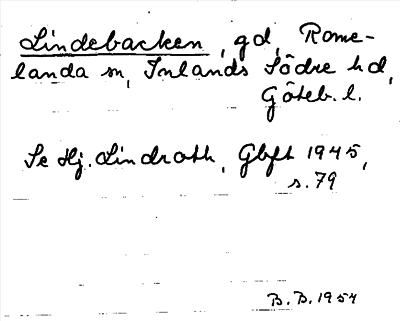 Lindebacken, gd, Rome-
landa sn, Inlands Södre hd,
Göteb. l.
Se Hj. Lindroth, Gbft 1945,
s. 79
B. B. 1954